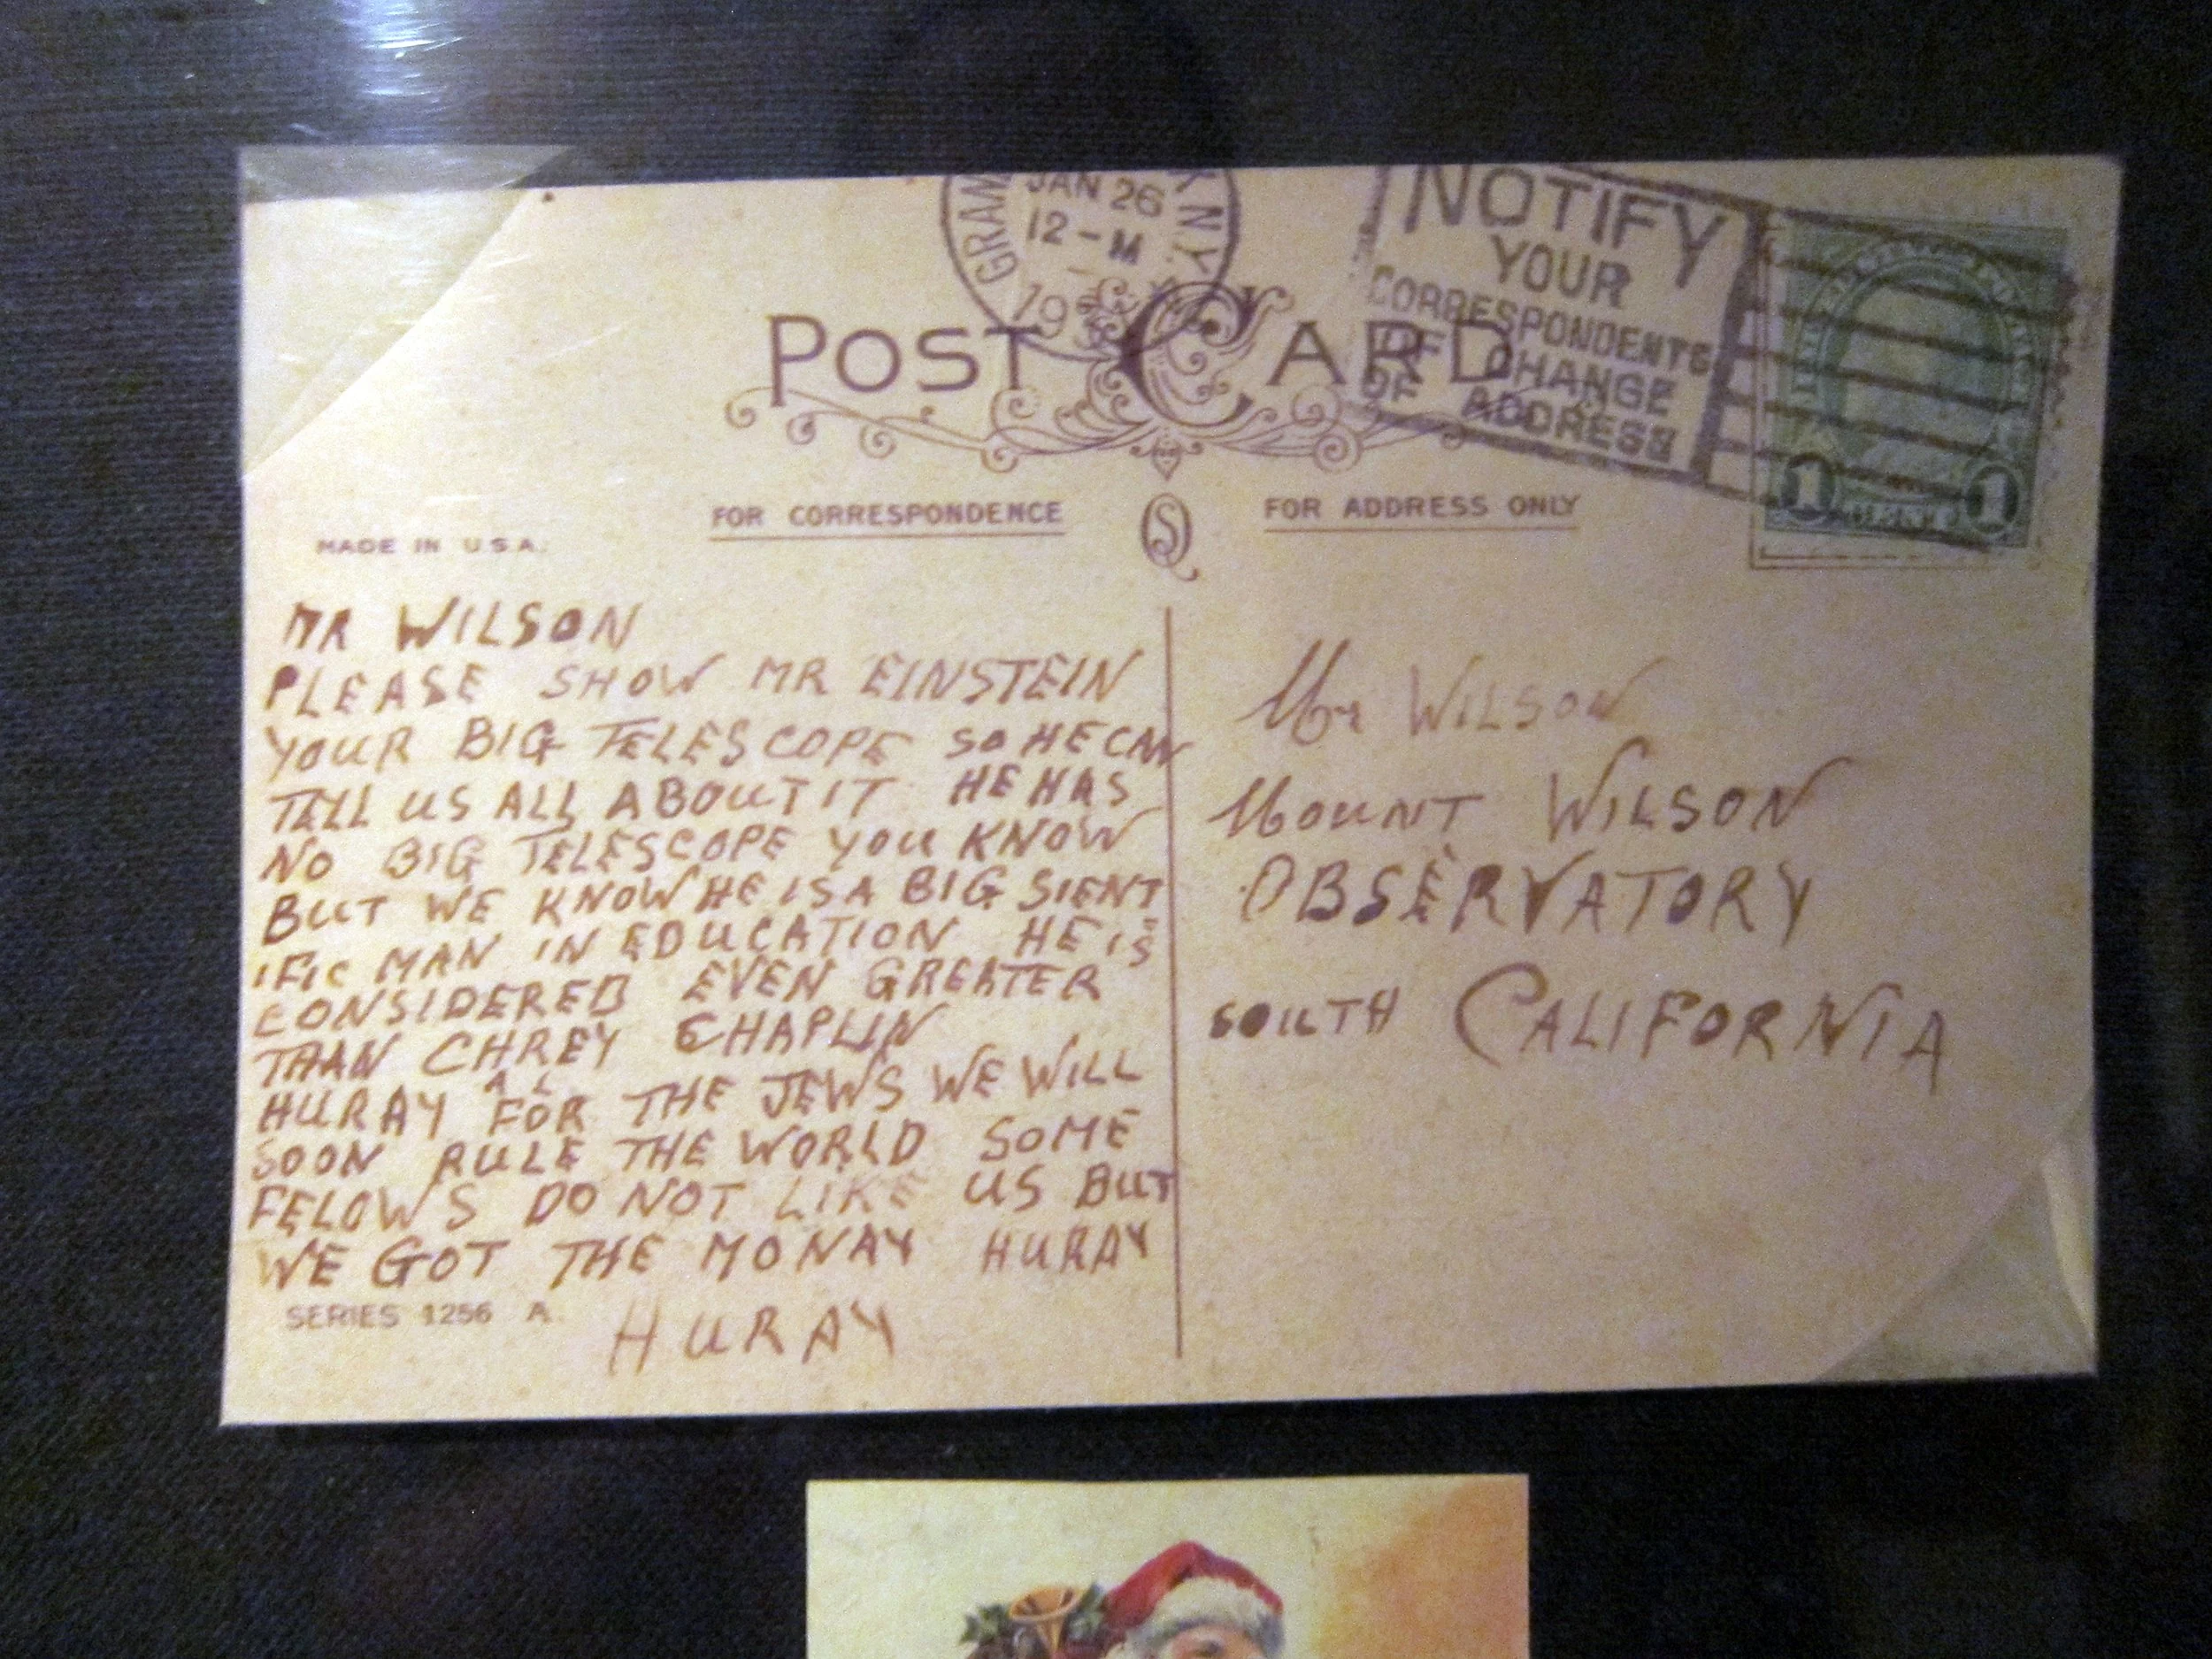 GRAM
JAN 26
12-M
19
N.Y.
NOTIFY
YOUR
CORRESPONDENTS
OF CHANGE
OF ADDRESS
POST CARD
1 1
FOR CORRESPONDENCE
FOR ADDRESS ONLY
MADE IN U.S.A.
MR WILSON
PLEASE SHOW MR EINSTEIN
YOUR BIG TELESCOPE SO HE CAN
TELL US ALL ABOUT IT HE HAS
NO BIG TELESCOPE YOU KNOW
BUT WE KNOW HE IS A BIG SIENT
IFIC MAN IN EDUCATION HE IS
CONSIDERED EVEN GREATER
THAN CHREY CHAPLIN
A L
HURAY FOR THE JEWS WE WILL
SOON RULE THE WORLD SOME
FELOWS DO NOT LIKE US BUT
WE GOT THE MONAY HURAY
SERIES 1256 A.
HURAY
Mr WILSON
MOUNT WILSON
OBSERVATORY
SOUTH CALIFORNIA